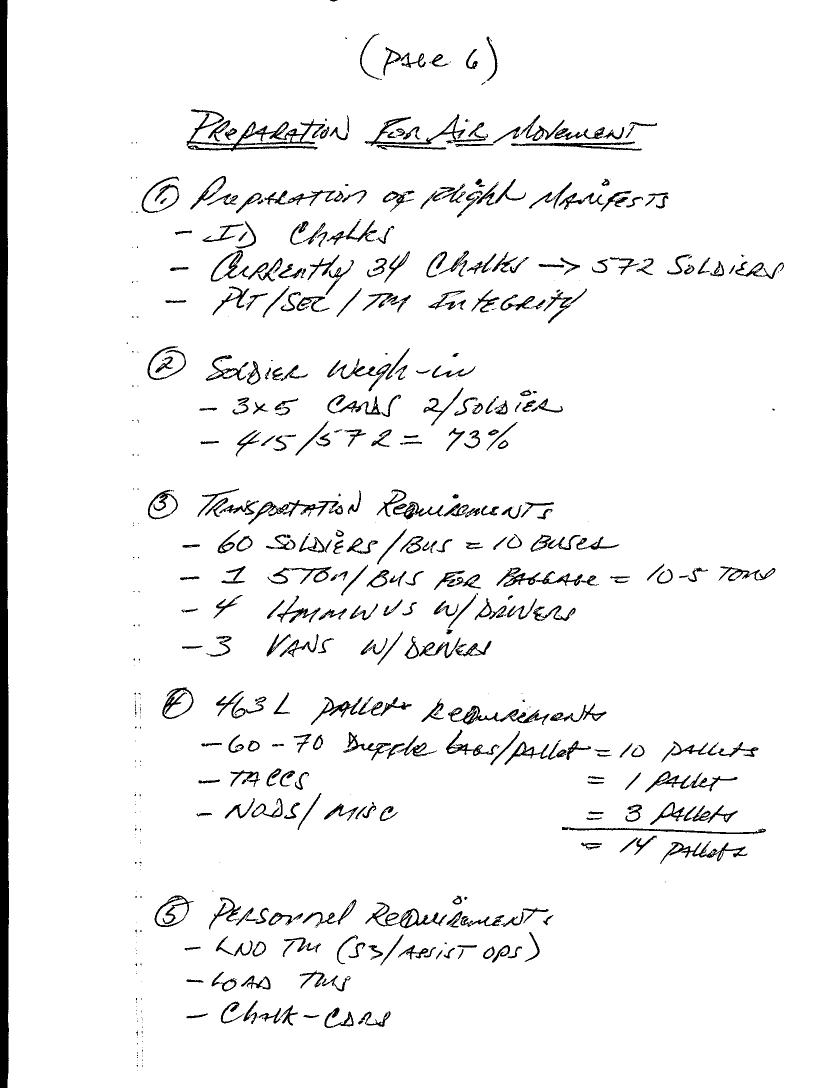 (PAGE 6)
PREPARATION FOR AIR MOVEMENT
① PREPARATION OF FLIGHT MANIFESTS
- ID CHALKS
- CURRENTLY 34 CHALKS → 572 SOLDIERS
- PLT/SEC/TM INTEGRITY
② SOLDIER WEIGH-IN
- 3x5 CARDS 2/SOLDIER
- 415/572 = 73%
③ TRANSPORTATION REQUIREMENTS
- 60 SOLDIERS/BUS = 10 BUSES
- 1 5TON/BUS FOR BAGGAGE = 10-5 TONS
- 4 HMMWVS W/DRIVERS
- 3 VANS W/DRIVERS
④ 463L PALLET REQUIREMENTS
- 60-70 DUFFLE BAGS/PALLET = 10 PALLETS
- TACCS = 1 PALLET
- NODS/MISC = 3 PALLETS
= 14 PALLETS
⑤ PERSONNEL REQUIREMENTS
- LNO TM (S3/ASSIST OPS)
- LOAD TMS
- CHALK-CDRS